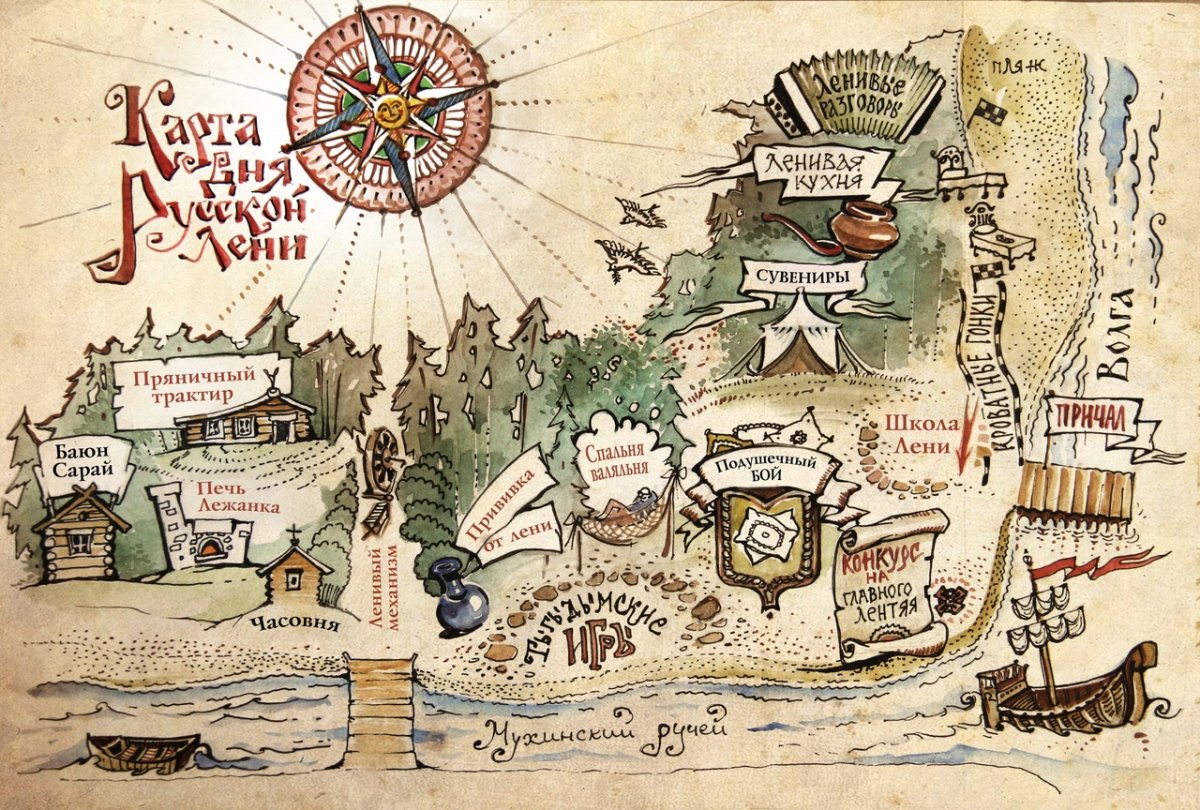 Карта
дня
Русской
лени
Ленивые
разговоры
пляж
Ленивая
кухня
Сувениры
Волга
Кроватные гонки
Причал
Пряничный
трактир
Баюн
Сарай
Печь
Лежанка
Часовня
Ленивый
механизм
Прививка
от лени
Спальня
валяльня
Подушечный
бой
Школа
Лени
Конкурс
на
главного
лентяя
Тыгыдымские
игры
Мухинский ручей